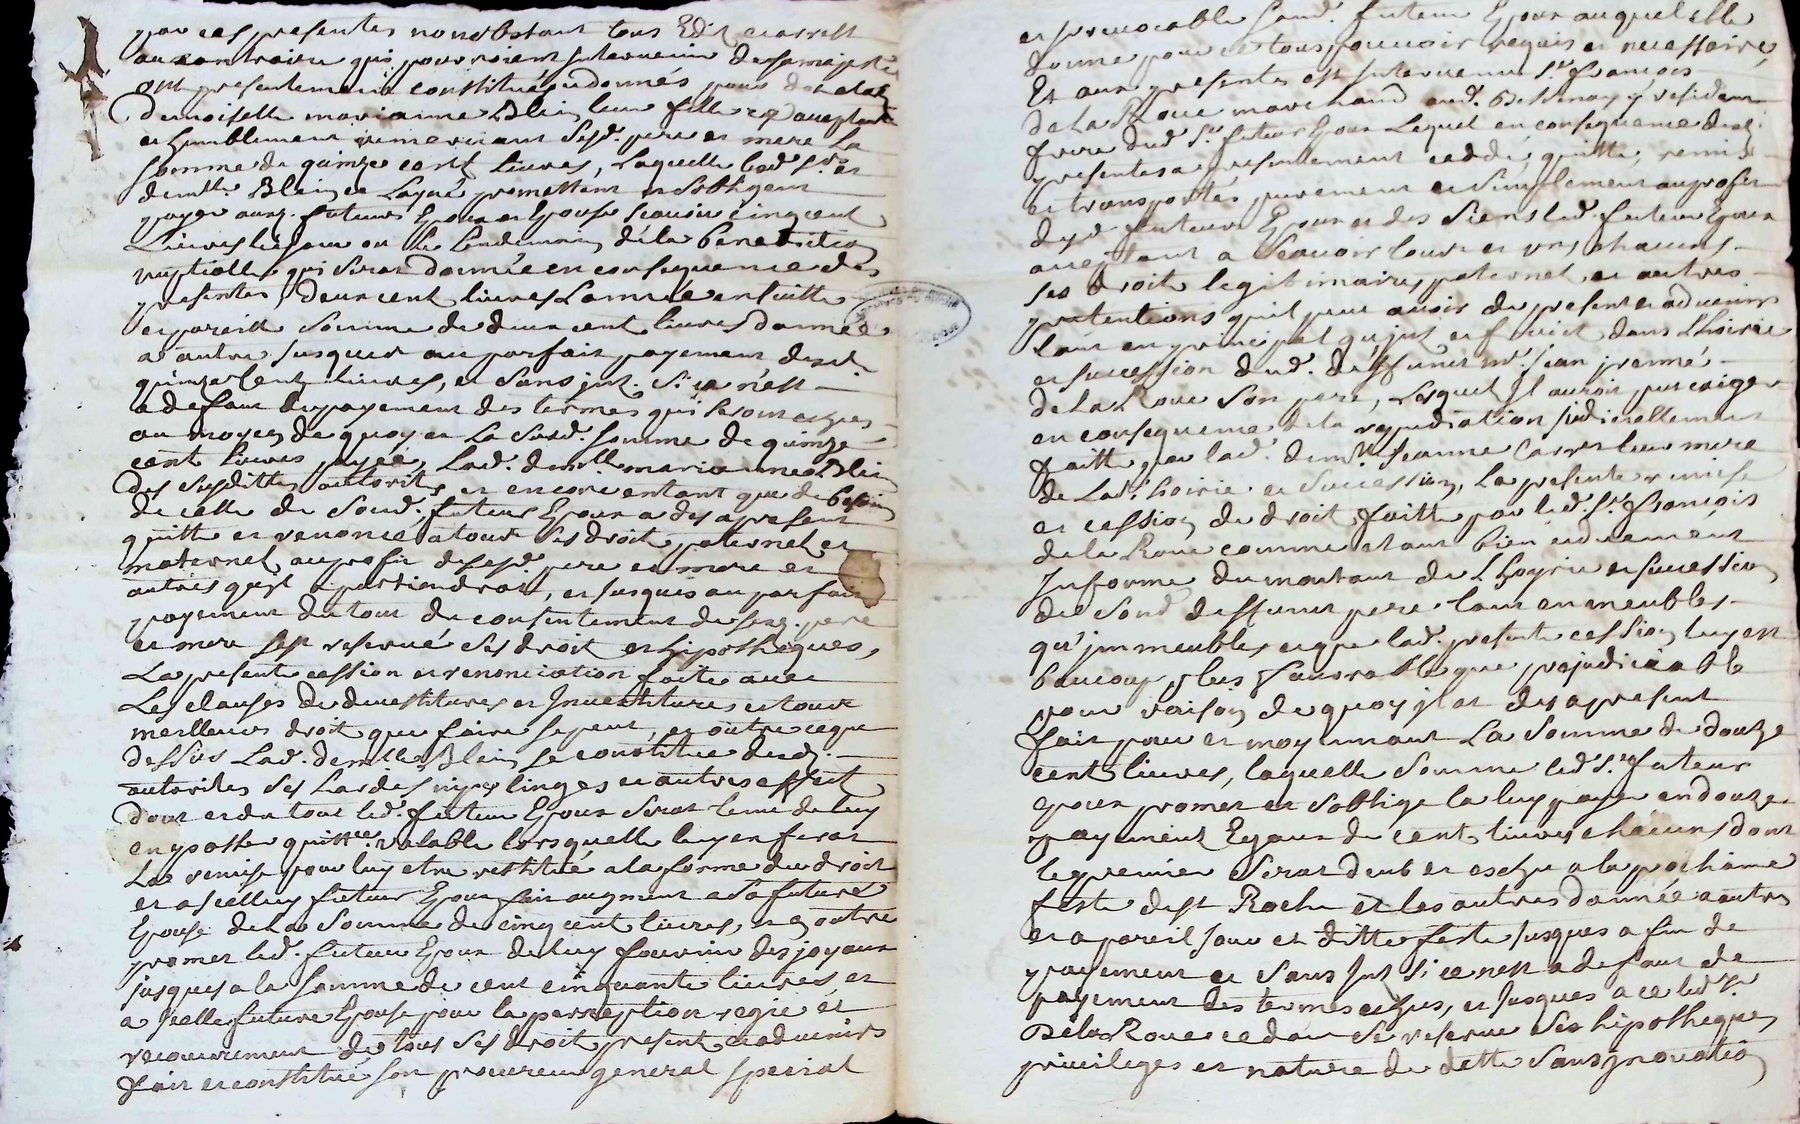 par ces presentes nonobstant tous Edit et arrest
au contraire qui pourroient Intervenir de sa majesté
ont presentement constitué et donnés pour dot a lad.
Demoiselle marianne Blein leur fille icy acceptante
et humblement remerciant sesd. pere et mere La
somme de quinze cent Livres, Laquelle led. Sr. et
demlle. Blein et promettent et sobligent
payer auxd. futurs Epoux et Epouse scavoir cinq cent
Livres le jour ou le Lendemain de la benediction
nuptialle qui serat donnée en consequence des
presentes, deux cent livres Lannée ensuitte
et pareille somme de deux cent livres dannée
a autre jusques au parfait payement desd.
quinze cent livres, et sans jnt. si ce n'est
a defaut de payement des termes qui seront echus
au moyen de quoy et La susd. somme de quinze
cent livres payée, Lad. demlle marianne Blein
des susdittes autorités et encore entant que de besoin
de celle de Sond. futeur Epoux a des a present
quitté et renoncé a tout ses droit paternel et
maternel au profit de sesd. pere et mere et
autres qu'il apartiendrat, et jusques au parfait
payement du tout du consentement de sesd. pere
et mere sest reservé ses droit et hipotheques,
La presente cession et renonciation faite avec
Les clauses de devestitures et Jnvestitures et tout
meilleurs droit que faire se peut, et outre ce que
dessus Lad. demlle Blein se constitue desd.
autorites ses hardes nipes linges et autres effect
dont et du tout led. futeur Epoux serat tenu de luy
en passer quittce. valable lorsquelle luy en ferat
La remise pour luy etre restitué a la forme du droit
et a jcelluy futeur Epoux fait augment a sa future
Epouse de la somme de cinq cent livres, et en outre
promet led. futeur Epoux de luy fournir des joyaux
jusques a la somme de cent cinquante livres, et
a jcelle future Epouse pour la perception regie et
recouvrement de tous ses droit present et advenirs
fait et constitue son procureur general special
et jrrevocable Sond. futeur Epoux auquel elle
donne pour ce tous pouvoir requis et necessaires
Et aux presentes est Intervenu Sr. françois
de La Roue marchand aud. y resident
frere dud. Sr. futeur Epoux Lequel en consequence desd.
presentes a presentement cedde, quitté, remis
et transportés purement et simplement au profit
dud. futeur Epoux et des siens led. futeur Epoux
acceptant a scavoir tout et uns chacuns
ses droit legitimaires paternel et autres
pretentions qu'il peut avoir de present et advenirs
tant en principal qu'jnt et fruict dans Lhoirie
et succession dud. deffunct mr. jean
de La Roue son pere, Lesquel jl auroit pu exiger
en consequence de la repudiation judiciellement
faitte par lad. demlle jeanne leur mere
de Lad. hoirie et succession, La presente remise
et cession de droit faitte par led. Sr. francois
de la Roue comme etant bien et duement
Informé du montant de Lhoyrie et succession
de Sond deffunct pere tant en meubles
qu'jmmeubles et que lad. presente cession luy est
beaucoup plus favorable que prejudiciable
pour raison de quoy jl at des a present
fait pour et moyennant La somme de douze
cent livres, laquelle somme led. Sr. futeur
epoux promet et soblige la luy payer en douze
payement Egaux de cent livres chacuns dont
le premier serat deub et echu a la prochaine
feste de St Roch et les autres dannée a autre
et a pareil jour et ditte feste jusques a fin de
payement et sans jnt si ce nest a defaut de
payement des termes echus, et jusques a ce led. Sr.
De la Roue cedant se reserve ses hipotheques
privileges et nature de dette sans jnovation